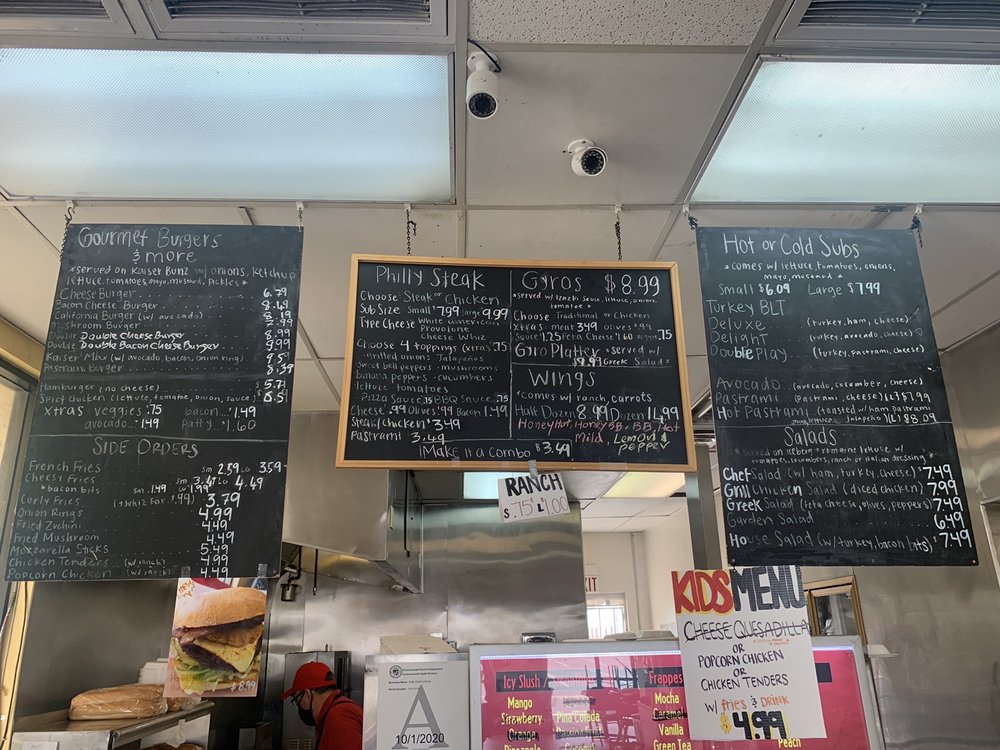 Gourmet Burgers
& more
*served on Kaiser Bunz w/ onions, ketchup
lettuce, tomatoes, mayo, mustard, pickles *
Cheese Burger 6.79
Bacon Cheese Burger 8.49
California Burger (w/ avocado) 8.19
Mushroom Burger 7.99
Double Cheese Burger 8.99
Double Bacon Cheese Burger 9.99
Kaiser Maxx (w/ avocado, bacon, onion ring)
Pastrami Burger 8.39
Hamburger (no cheese) $5.71
Spicy Chicken (lettuce, tomato, onion, sauce)
xtras veggies .75 bacon 1.49
avocado 1.49 Patty 1.60
Side Orders
French Fries sm 2.59 LG 3.59
Cheesy Fries sm 3.47 LG 4.49
*bacon bits sm .1.49 LG 1.99
Curly Fries (+ whiz for .99) 3.79
Onion Rings 4.99
Fried Zuchini 4.49
Fried Mushroom 4.49
Mozzarella Sticks 5.49
Chicken Tenders (w/ ranch) 4.99
Popcorn Chicken (w/ ranch) 4.49
Philly Steak
Choose Steak or Chicken
Sub Size Small $7.99 large 9.99
Type Cheese White American
Provolone
Cheese Whiz
Choose 4 toppings (xtras) .75
grilled onions Jalapeños
sweet bell peppers mushrooms
banana peppers cucumbers
lettuce tomatoes
Pizza Sauce .75 BBQ Sauce .75
Cheese .99 Olives .99 Bacon 1.49
Steak/chicken $3.49
Pastrami 3.49
Gyros $8.99
*served w/ tzaziki sauce, lettuce, onion,
tomatoe *
Choose Traditional or Chicken
xtras meat 3.49 olives .99
Sauce 1.25 Feta Cheese 1.60 .75
Gyro Platter *served w/
$9.99 Greek Salad *
Wings
*comes w/ ranch, carrots
Half Dozen 8.99 Dozen 14.99
Honey hot, Honey BBQ, BB, Hot
Mild, Lemon &
pepper
Make it a combo $3.49
RANCH
S .75¢ L $1.00
Hot or Cold Subs
*comes w/ lettuce, tomatoes, onions,
mayo, mustard *
Small $6.09 Large $7.99
Turkey BLT
Deluxe (turkey, ham, cheese)
Delight (turkey, avocado, cheese)
Double Play (turkey, pastrami, cheese)
Avocado (avocado, cucumber, cheese)
Pastrami (Pastrami, cheese) (L) $7.99
Hot Pastrami (toasted w/ ham Pastrami
Jalapeño (L) $8.09
Salads
*Served on iceberg & romaine lettuce w/
tomatoes, cucumbers, ranch or italian dressing *
Chef Salad (w/ ham, turkey, cheese) $7.49
Grill Chicken Salad (diced chicken) $7.99
Greek Salad (feta cheese, olives, peppers) $7.99
Garden Salad 6.49
House Salad (w/ turkey, bacon bits) $7.49
KIDS MENU
CHEESE QUESADILLA
OR
POPCORN CHICKEN
OR
CHICKEN TENDERS
W/ fries & DRINK
$4.99
$8.99
A
10/1/2020
Icy Slush /
Mango
Strawberry
Orange
Pineapple
Pina Colada
Frappes
Mocha
Caramel
Vanilla
Green Tea
Peach